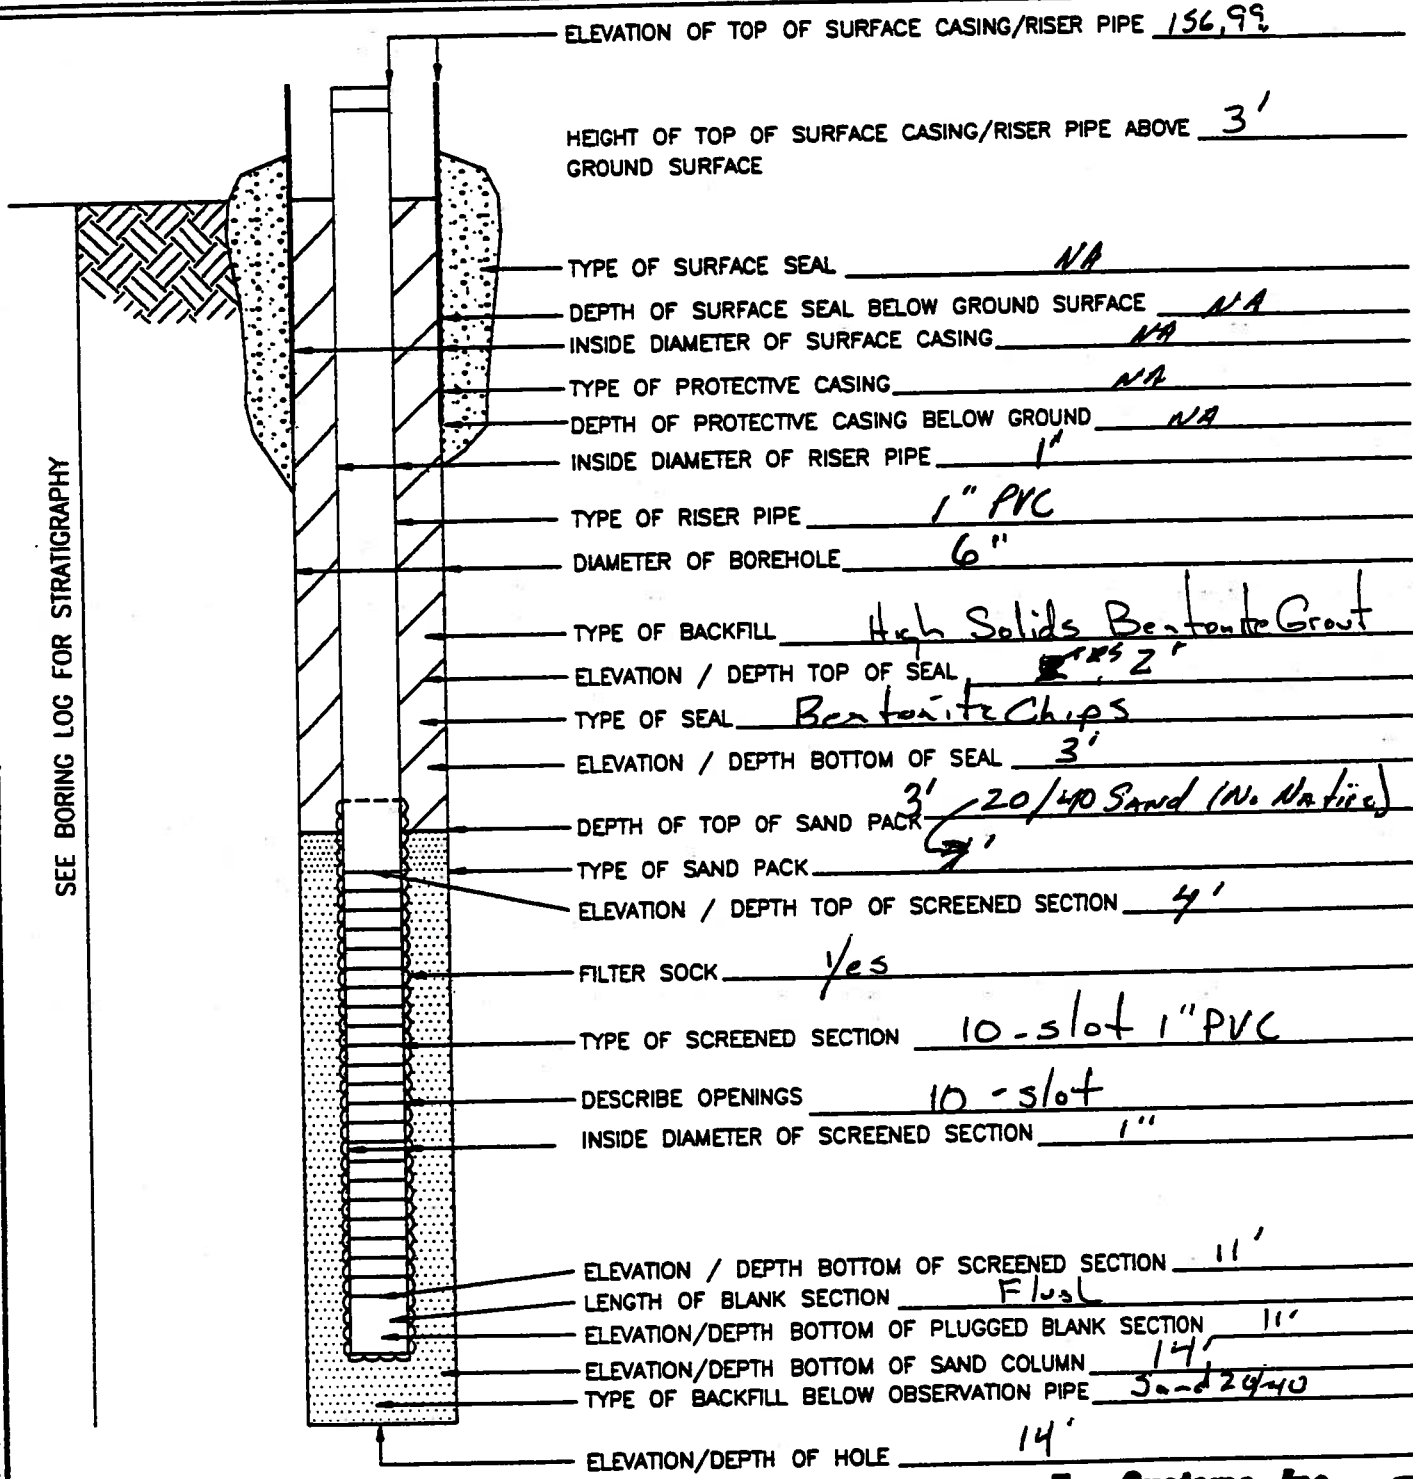 ELEVATION OF TOP OF SURFACE CASING/RISER PIPE 156,99
HEIGHT OF TOP OF SURFACE CASING/RISER PIPE ABOVE 3'
GROUND SURFACE
TYPE OF SURFACE SEAL NA
DEPTH OF SURFACE SEAL BELOW GROUND SURFACE NA
INSIDE DIAMETER OF SURFACE CASING NA
TYPE OF PROTECTIVE CASING NA
DEPTH OF PROTECTIVE CASING BELOW GROUND NA
INSIDE DIAMETER OF RISER PIPE 1"
TYPE OF RISER PIPE 1" PVC
DIAMETER OF BOREHOLE 6"
SEE BORING LOG FOR STRATIGRAPHY
TYPE OF BACKFILL High Solids Bentonite Grout
ELEVATION / DEPTH TOP OF SEAL 2'
TYPE OF SEAL Bentonite Chips
ELEVATION / DEPTH BOTTOM OF SEAL 3'
DEPTH OF TOP OF SAND PACK 3' 20/40 Sand (No Native)
TYPE OF SAND PACK
ELEVATION / DEPTH TOP OF SCREENED SECTION 4'
FILTER SOCK Yes
TYPE OF SCREENED SECTION 10-slot 1" PVC
DESCRIBE OPENINGS 10-slot
INSIDE DIAMETER OF SCREENED SECTION 1"
ELEVATION / DEPTH BOTTOM OF SCREENED SECTION 11'
LENGTH OF BLANK SECTION Flush
ELEVATION/DEPTH BOTTOM OF PLUGGED BLANK SECTION 11'
ELEVATION/DEPTH BOTTOM OF SAND COLUMN 14'
TYPE OF BACKFILL BELOW OBSERVATION PIPE Sand 20/40
ELEVATION/DEPTH OF HOLE 14'